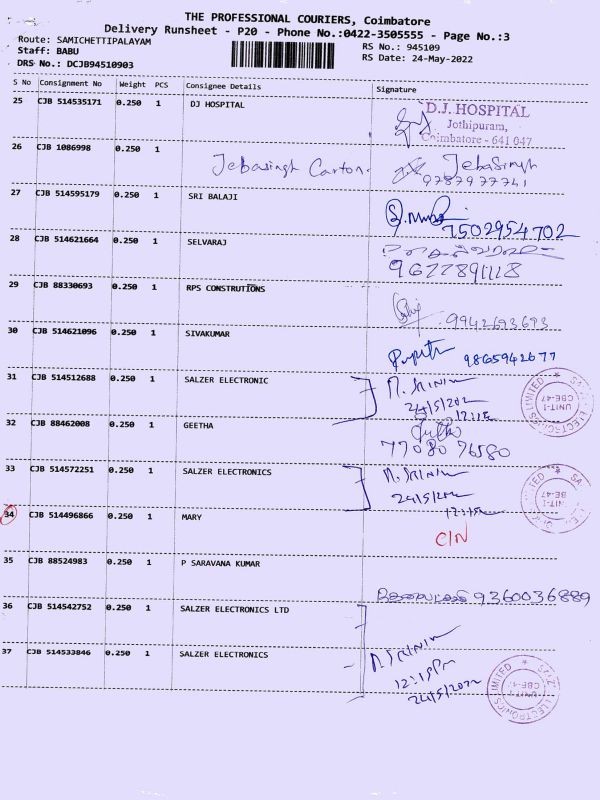 THE PROFESSIONAL COURIERS, Coimbatore
Delivery Runsheet - P20 - Phone No.:0422-3505555 - Page No.:3
Route: SAMICHETTIPALAYAM RS No.: 945109
Staff: BABU RS Date: 24-May-2022
DRS No.: DCJB94510903
S No Consignment No Weight PCS Consignee Details Signature
25 CJB 514535171 0.250 1 DJ HOSPITAL
D.J. HOSPITAL
Jothipuram,
Coimbatore - 641 047
26 CJB 1086998 0.250 1
Jebasingh Carton. Jebasingh
9787977741
27 CJB 514595179 0.250 1 SRI BALAJI
7502954702
28 CJB 514621664 0.250 1 SELVARAJ
9622891118
29 CJB 88330693 0.250 1 RPS CONSTRUTIONS
9942693693
30 CJB 514621096 0.250 1 SIVAKUMAR
9865942677
31 CJB 514512688 0.250 1 SALZER ELECTRONIC
24/5/202
12:15
SALZER ELECTRONICS LIMITED
UNIT-1
CBE-47
32 CJB 88462008 0.250 1 GEETHA
77080 76580
33 CJB 514572251 0.250 1 SALZER ELECTRONICS
24/5/202
34 CJB 514496866 0.250 1 MARY
C/N
35 CJB 88524983 0.250 1 P SARAVANA KUMAR
9360036889
36 CJB 514542752 0.250 1 SALZER ELECTRONICS LTD
37 CJB 514533846 0.250 1 SALZER ELECTRONICS
12:15Pm
24/5/2022